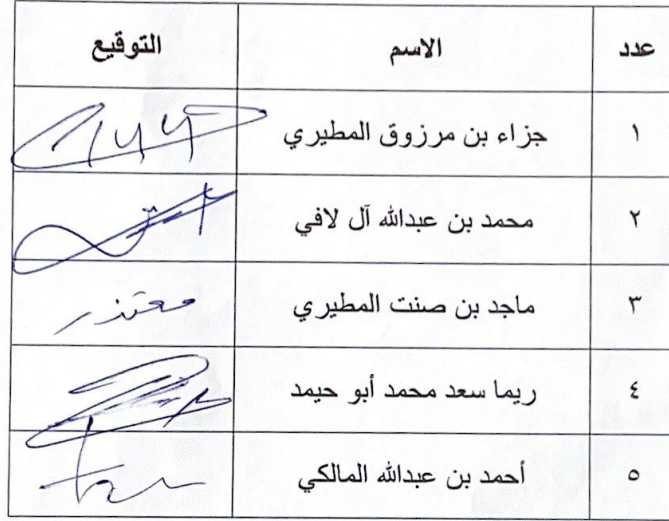 عدد الاسم التوقيع
١ جزاء بن مرزوق المطيري
٢ محمد بن عبدالله آل لافي
٣ ماجد بن صنت المطيري معتذر
٤ ريما سعد محمد أبو حيمد
٥ أحمد بن عبدالله المالكي